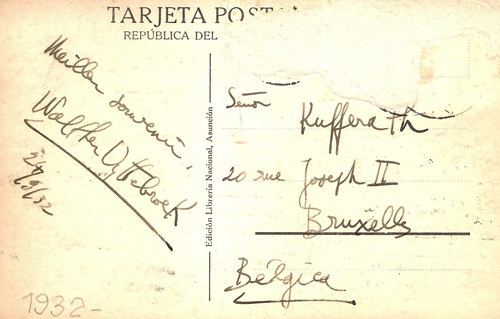 TARJETA POST
REPÚBLICA DEL
Meilleur souvenir,
Walther
24/9/32
1932-
Edición Librería Nacional, Asunción
Señor
Kufferath
20 rue Joseph II
Bruxelles
Bélgica